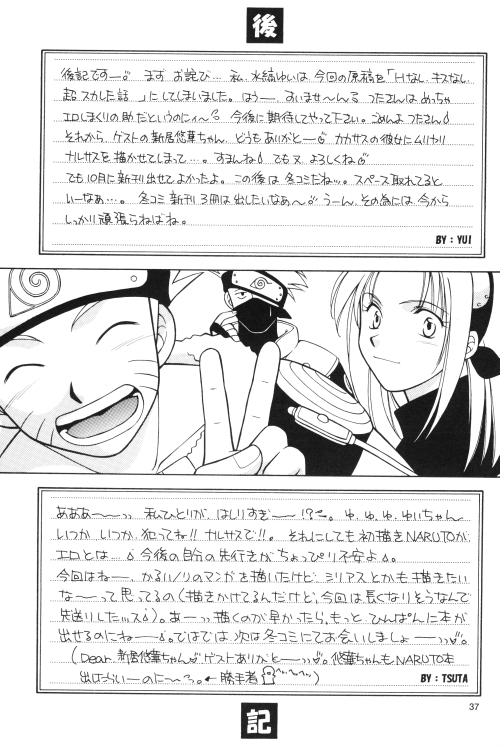 後
後記ですー。まず お詫び… 私、水縞ゆいは 今回の原稿を「Hなし、キスなし、
超スカした話 」にしてしまいました。はうー すいませ～ん つたさんは めっちゃ
エロしまくりの助だというのにィ～ 今後に期待してやって下さい。ごめんよ つたさん
それから、ゲストの新居悠華ちゃん、どうもありがとー カカサスの彼女にムリヤリ
ナルサスを描かせてしまって…。すまんね でもヌ よろしくね
でも10月に新刊出せてよかったよ。この後は 冬コミだねッ。スペース取れてると
いーなあ…。 冬コミ 新刊 3冊は出したいなあ～ うーん、その為には 今から
しっかり頑張らねばね。
BY : YUI
あああーーッ 私ひとりが、はしりすぎーー!? ゆ、ゆ、ゆ、ゆいちゃん
いつか いつか、犯ってね!! ナルサスで!!。 それにしても 初描きNARUTOが、
エロとは… 今後の自分の先行きが ちょっぴり不安よ。
今回はねー、かるいノリのマンガを描いたけど、ミリアスとかも 描きたい
なーって 思ってるの(描きかけてるんだけど、今回は長くなりそうなんで
先送りしたッス)。あーっ 描くのが早かったら、もっと ひんぱんに本が
出せるのにねー。ではでは 次は冬コミにてお会いしましょーッ。
(Dear. 新居悠華ちゃん ゲストありがとーッ。悠華ちゃんもNARUTO本
出せばいーのに～。←勝手者 )
BY : TSUTA
37
記